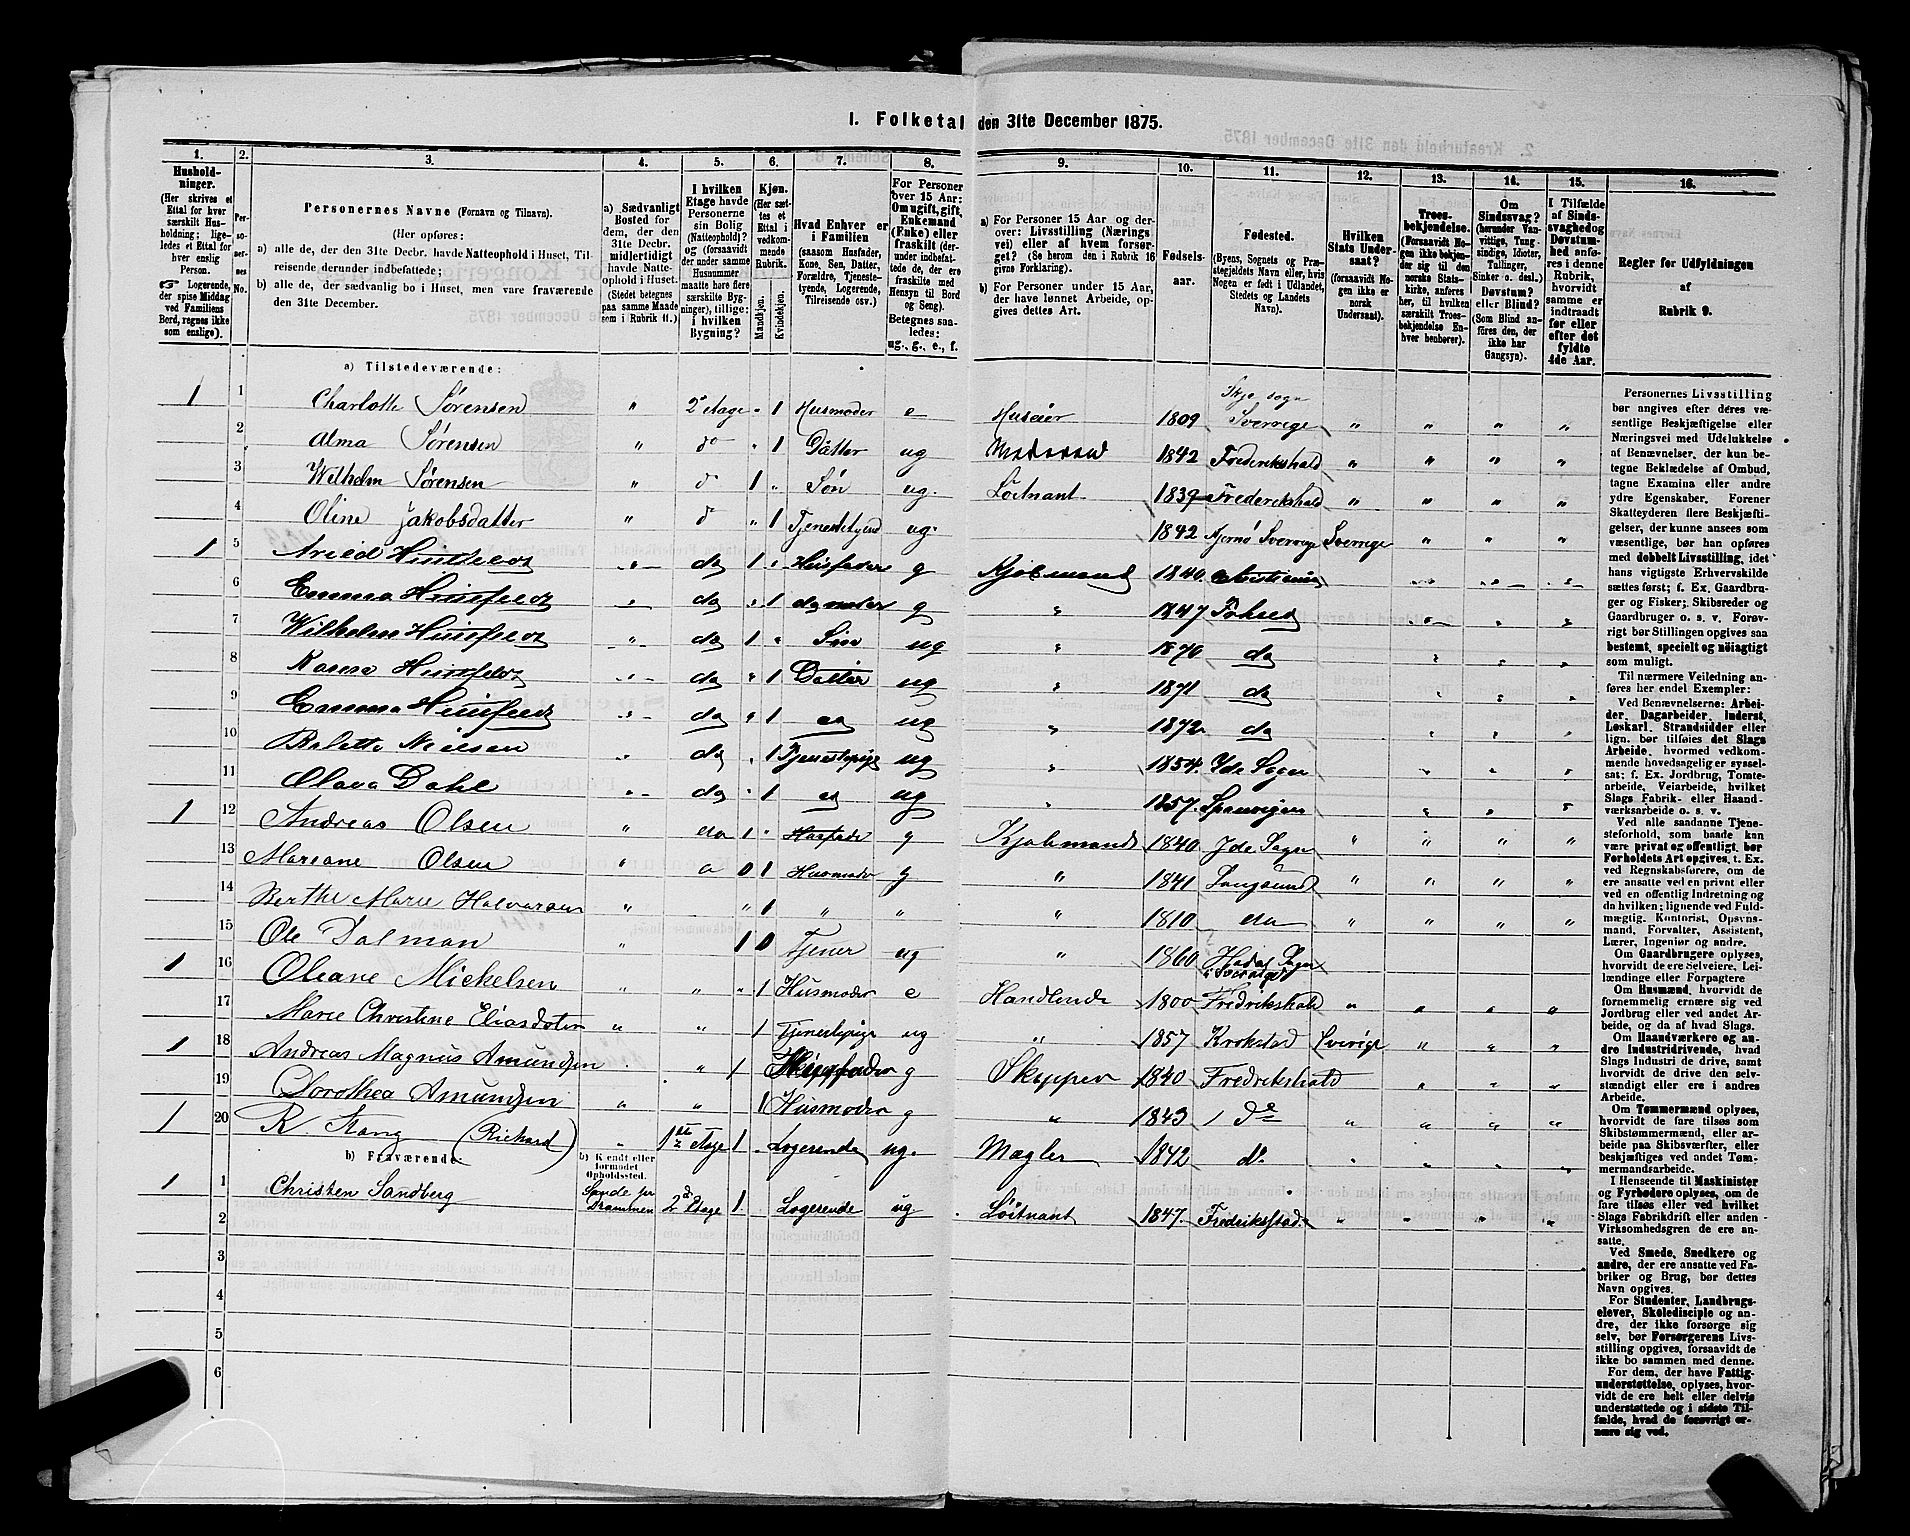 1. Folketal den 31te December 1875.
1. 2. 3. 4. 5. 6. 7. 8. 9. 10. 11. 12. 13. 14. 15. 16.
Husholdninger. (Her skrives et Ettal for hver særskilt Husholdning; ligeledes et Ettal for hver enslig Person. Logerende, der spise Middag ved Familiens Bord, regnes ikke som enslige).
Personernes No.
Personernes Navne (Fornavn og Tilnavn).
(Her opføres:
a) alle de, der den 31te Decbr. havde Natteophold i Huset, Tilreisende derunder indbefattede;
b) alle de, der sædvanlig bo i Huset, men vare fraværende den 31te December.
a) Sædvanligt Bosted for dem, der den 31te Decbr. midlertidigt havde Natteophold i Huset. (Stedet betegnes paa samme Maade som i Rubrik 11.)
I hvilken Etage havde Personerne sin Bolig (Natteophold)? og (forsaavidt der under samme Husnummer maatte høre flere særskilte Bygninger), tillige: i hvilken Bygning?
Kjøn. (Her sættes et Ettal i vedkommende Rubrik. Mandkjøn. Kvindekjøn.
Hvad Enhver er i Familien (saasom Husfader, Kone, Søn, Datter, Forældre, Tjenestetyende, Logerende, Tilreisende osv.)
For Personer over 15 Aar: Om ugift, gift, Enkemand (Enke) eller fraskilt (derunder indbefattede de, der ere fraskilte med Hensyn til Bord og Seng). Betegnes saaledes: ug., g., e., f.
a) For Personer 15 Aar og derover: Livsstilling (Næringsvei) eller af hvem forsørget? (Se herom den i Rubrik 16 givne Forklaring).
b) For Personer under 15 Aar, der have lønnet Arbeide, opgives dettes Art.
Fødselsaar.
Fødested. (Byens, Sognets og Præstegjeldets Navn eller, hvis Nogen er født i Udlandet, Stedets og Landets Navn).
Hvilken Stats Undersaat? (forsaavidt Nogen ikke er norsk Undersaat).
Troesbekjendelse. (Forsaavidt Nogen ikke bekjender sig til den norske Statskirke, anføres her, til hvilken særskilt Troesbekjendelse Enhver benhører).
Om Sindssvag? (herunder Vanvittige, Tungsindige, Idioter, Tullinger, Sinker o. desl.). Døvstum? eller Blind? (Som Blind anføres den, der ikke har Gangsyn).
I Tilfælde af Sindssvaghed og Døvstumhed anføres i denne Rubrik, hvorvidt samme er indtraadt før eller efter det fyldte 4de Aar.
Regler for Udfyldningen af Rubrik 9.
a) Tilstedeværende:
1 1 Charlotte Sørensen " 2' Etage " 1 Husmoder e Huseier 1809 Skje sogn Sverrige " " " "
2 Alma Sørensen " do " 1 Datter ug 1842 Frederikshald " " " "
3 Wilhelm Sørensen " d 1 " Søn ug. Løitnant 1839 Frederikshald " " " "
4 Oline Jakobsdatter " d " 1 Tjenestetyend ug. 1842 Sverrige Sverrige " " "
1 5 Arild Huitfeldt " do 1 " Husfader g Kjøbmand 1840 Christiania
6 Emma Huitfeldt " do " 1 do moder g " 1847 Fokset
7 Wilhelm Huitfeldt " do 1 " Søn ug " 1870 do
8 Karen Huitfeldt " do " 1 Datter ug " 1871 do
9 Emma Huitfeldt " do " 1 do ug " 1872 do
10 Bolette Nielsen " do " 1 Tjenestepige ug " 1854. Ide Sogn
11 Olava Dahl " do " 1 do ug " 1857.
1 12 Andreas Olsen " do 1 " Husfader g Kjøbmand 1840 Ide Sogn " " " "
13 Mariane Olsen " 0 1 Husmoder g " 1841 Langesund " " " "
14 Berthe Marie Halvorsen " " 1 " " " 1810 do " " " "
15 Ole Dalman " 1 0 Tjener ug " 1860 Sogn i Sverrige
1 16 Oleane Mickelsen " " " 1 Husmoder e Handlende 1800 Fredrikshald " " " "
17 Marie Christine Eliasdoter " " 1 Tjenestepige ug " 1857 Krokstad Sverige " " "
1 18 Andreas Magnus Amundsen " 1 Husfader g Skipper 1840 Fredrikshald " " "
19 Dorothea Amundsen " " 1 Husmoder g " 1843 do " " " "
1 20 R. Stang (Richard) " 1ste Etage 1. Logerende ug. Mægler 1842 do
b) Fraværende: b) Kjendt eller formodet Opholdssted.
1 1 Christen Sandberg Sande pr Drammen 2d Etage 1. Logerende ug Løitnant 1847. Fredriksstad " " " "
2
3
4
5
6
Personernes Livsstilling bør angives efter deres væsentlige Beskjæftigelse eller Næringsvei med Udelukkelse af Benævnelser, der kun betegne Beklædelse af Ombud, tagne Examina eller andre ydre Egenskaber. Forener Skatteyderen flere Beskjæftigelser, der kunne ansees som væsentlige, bør han opføres med dobbelt Livsstilling, idet hans vigtigste Erhvervskilde sættes først; f. Ex. Gaardbruger og Fisker; Skibsreder og Gaardbruger o. s. v. Forøvrigt bør Stillingen opgives saa bestemt, specielt og nøiagtigt som muligt.
Til nærmere Veiledning anføres her endel Exempler:
Ved Benævnelserne: Arbeider, Dagarbeider, Inderst, Løskarl, Strandsidder eller lign. bør tilføies det Slags Arbeide, hvormed vedkommende hovedsagelig er sysselsat; f. Ex. Jordbrug, Tomtearbeide, Veiarbeide, hvilket Slags Fabrik- eller Haandværksarbeide o. s. v.
Ved alle saadanne Tjenesteforhold, som baade kan være privat og offentligt, bør Forholdets Art opgives, t. Ex. ved Regnskabsførere, om de ere ansatte ved en privat eller ved en offentlig Indretning og da hvilken; lignende ved Fuldmægtig, Kontorist, Opsynsmand, Forvalter, Assistent, Lærer, Ingeniør og andre.
Om Gaardbrugere oplyses, hvorvidt de ere Selveiere, Leilændinge eller Forpagtere
Om Husmænd, hvorvidt de fornemmelig ernære sig ved Jordbrug eller ved andet Arbeide, og da af hvad Slags.
Om Haandværkere og andre Industridrivende, hvad Slags Industri de drive, samt hvorvidt de drive den selvstændigt eller ere i andres Arbeide.
Om Tømmermænd oplyses, hvorvidt de fare tilsøs som Skibstømmermænd, eller arbeide paa Skibsværfter, eller beskjæftiges ved andet Tømmermandsarbeide.
I Henseende til Maskinister og Fyrbødere oplyses, om de fare tilsøs eller ved hvilket Slags Fabrikdrift eller anden Virksomhedsgren de ere ansatte.
Ved Smede, Snedkere og andre, der ere ansatte ved Fabriker og Brug, bør dettes Navn opgives.
For Studenter, Landbrugselever, Skoledisciple og andre, der ikke forsørge sig selv, bør Forsørgerens Livsstilling opgives, forsaavidt de ikke bo sammen med denne.
For dem, der have Fattigunderstøttelse, oplyses, hvorvidt de ere helt eller delvis understøttede og i sidste Tilfælde, hvad de forøvrigt ernære sig ved.